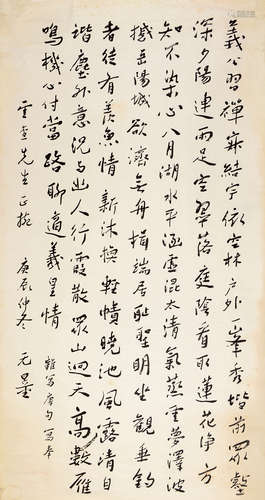 義公習禪寂結宇依空林戶外一峯秀堦前眾壑
深夕陽連雨足空翠落庭陰看取蓮花淨方
知不染心八月湖水平涵虛混太清氣蒸雲夢澤波
撼岳陽城欲濟無舟楫端居恥聖明坐觀垂釣
者徒有羨魚情 新沐換輕幘曉池風露清自
諧塵外意況與幽人行霞散眾山迥天高數雁
鳴機心付當路聊適羲皇情 唐句寫奉
先生正 庚辰仲冬 元墨